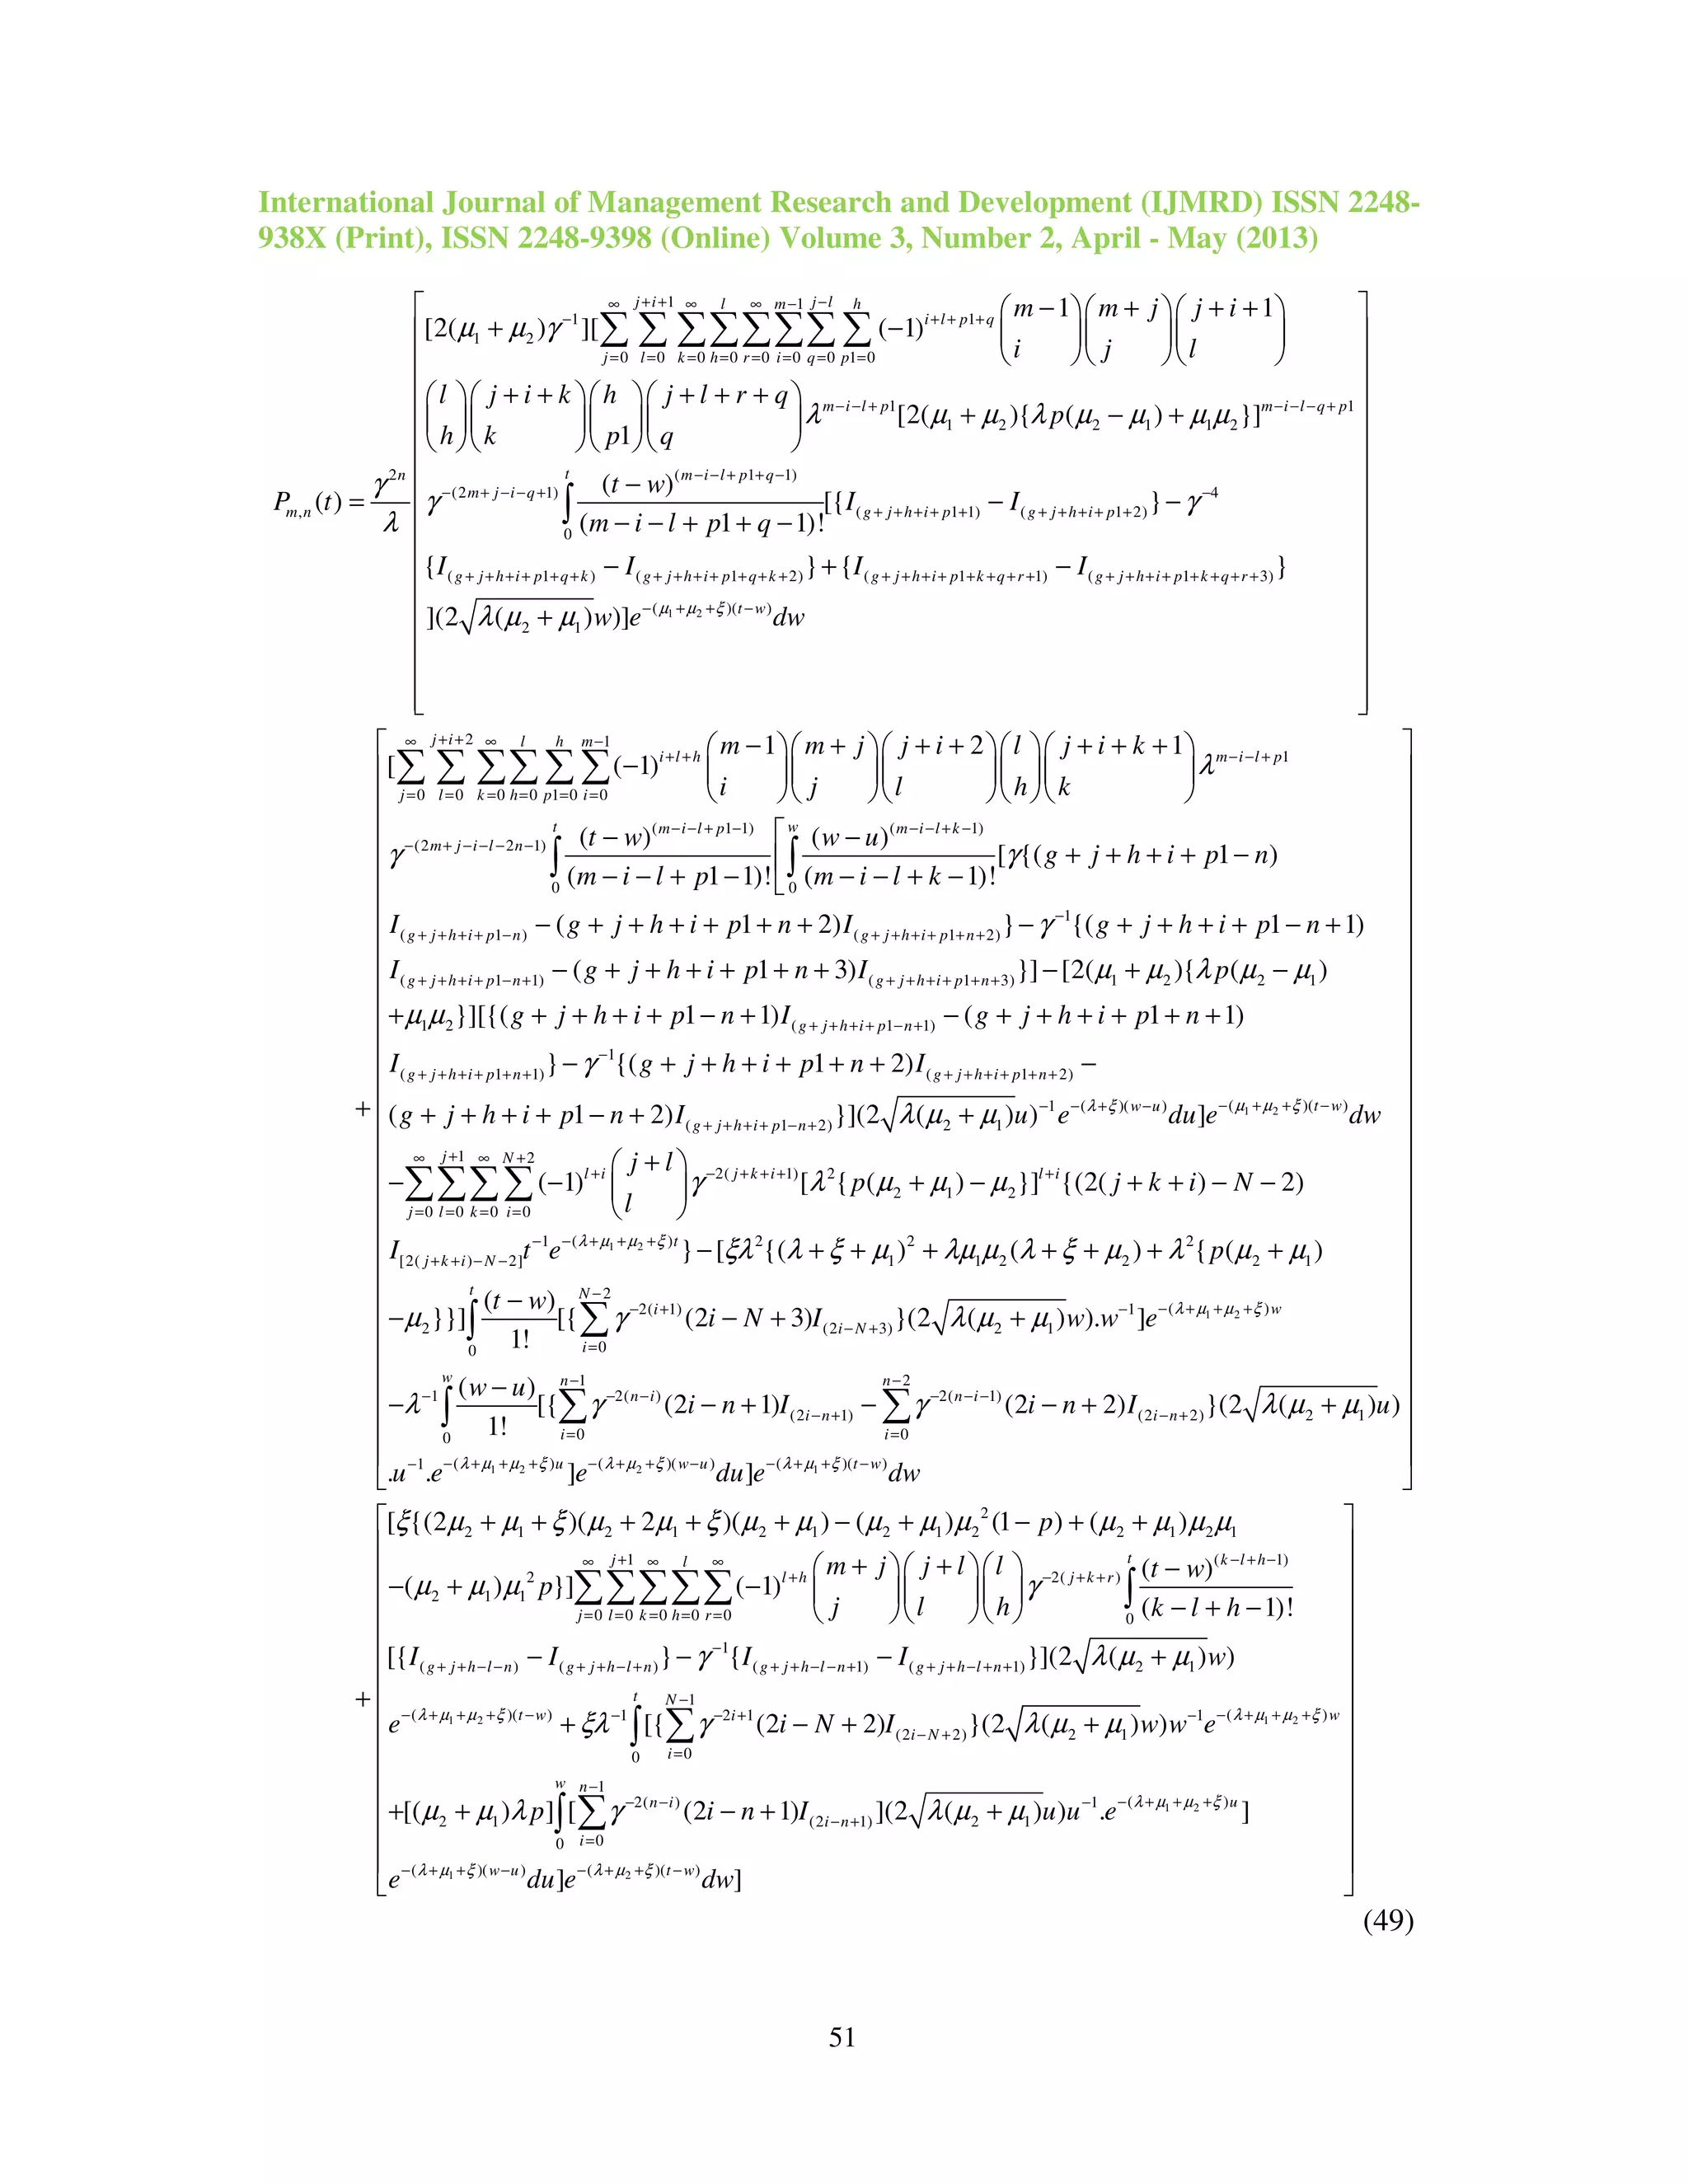 International Journal of Management Research and Development (IJMRD) ISSN 2248-
938X (Print), ISSN 2248-9398 (Online) Volume 3, Number 2, April - May (2013)
[2(μ₁ + μ₂)γ⁻¹][∑_{j=0}^{∞} ∑_{l=0}^{j+i+1} ∑_{k=0}^{∞} ∑_{h=0}^{l} ∑_{r=0}^{∞} ∑_{i=0}^{m−1} ∑_{q=0}^{j−l} ∑_{p1=0}^{h} (−1)^{i+l+p1+q} (m−1 / i)(m+j / j)(j+i+1 / l)
(l / h)(j+i+k / k)(h / p1)(j+l+r+q / q) λ^{m−i−l+p1}[2(μ₁ + μ₂){λp(μ₂ − μ₁) + μ₁μ₂}]^{m−i−l−q+p1}
P_{m,n}(t) = γ^{2n}/λ γ^{−(2m+j−i−q+1)} ∫_0^t (t − w)^{(m−i−l+p1+q−1)}/(m − i − l + p1 + q − 1)! [{I_{(g+j+h+i+p1+1)} − I_{(g+j+h+i+p1+2)}} − γ⁻⁴
{I_{(g+j+h+i+p1+q+k)} − I_{(g+j+h+i+p1+q+k+2)}} + {I_{(g+j+h+i+p1+k+q+r+1)} − I_{(g+j+h+i+p1+k+q+r+3)}}
](2√λ(μ₂ + μ₁)w)]e^{−(μ₁+μ₂+ξ)(t−w)}dw
[∑_{j=0}^{∞} ∑_{l=0}^{j+i+2} ∑_{k=0}^{∞} ∑_{h=0}^{l} ∑_{p1=0}^{h} ∑_{i=0}^{m−1} (−1)^{i+l+h} (m−1 / i)(m+j / j)(j+i+2 / l)(l / h)(j+i+k+1 / k) λ^{m−i−l+p1}
γ^{−(2m+j−i−l−2n−1)} ∫_0^t (t − w)^{(m−i−l+p1−1)}/(m − i − l + p1 − 1)! [∫_0^w (w − u)^{(m−i−l+k−1)}/(m − i − l + k − 1)! [γ{(g + j + h + i + p1 − n)
I_{(g+j+h+i+p1−n)} − (g + j + h + i + p1 + n + 2)I_{(g+j+h+i+p1+n+2)}} − γ⁻¹{(g + j + h + i + p1 − n + 1)
I_{(g+j+h+i+p1−n+1)} − (g + j + h + i + p1 + n + 3)I_{(g+j+h+i+p1+n+3)}}] − [2(μ₁ + μ₂){λp(μ₂ − μ₁)
+μ₁μ₂}][{(g + j + h + i + p1 − n + 1)I_{(g+j+h+i+p1−n+1)} − (g + j + h + i + p1 + n + 1)
I_{(g+j+h+i+p1+n+1)}} − γ⁻¹{(g + j + h + i + p1 + n + 2)I_{(g+j+h+i+p1+n+2)} −
+ (g + j + h + i + p1 − n + 2)I_{(g+j+h+i+p1−n+2)}}](2√λ(μ₂ + μ₁)u)⁻¹e^{−(λ+ξ)(w−u)}du]e^{−(μ₁+μ₂+ξ)(t−w)}dw
−∑_{j=0}^{∞} ∑_{l=0}^{j+1} ∑_{k=0}^{∞} ∑_{i=0}^{N+2} (−1)^{l+i} (j+l / l) γ^{−2(j+k+i+1)}[λ²{p(μ₂ + μ₁) − μ₂}]^{l+i}{(2(j + k + i) − N − 2)
I_{[2(j+k+i)−N−2]}t⁻¹e^{−(λ+μ₁+μ₂+ξ)t}} − [ξλ²{(λ + ξ + μ₁)² + λμ₁μ₂(λ + ξ + μ₂) + λ²{p(μ₂ + μ₁)
−μ₂}}] ∫_0^t (t − w)/1! [{∑_{i=0}^{N−2} γ^{−2(i+1)}(2i − N + 3)I_{(2i−N+3)}}(2√λ(μ₂ + μ₁)w).w⁻¹]e^{−(λ+μ₁+μ₂+ξ)w}
−λ⁻¹ ∫_0^w (w − u)/1! [{∑_{i=0}^{n−1} γ^{−2(n−i)}(2i − n + 1)I_{(2i−n+1)} − ∑_{i=0}^{n−2} γ^{−2(n−i−1)}(2i − n + 2)I_{(2i−n+2)}}(2√λ(μ₂ + μ₁)u)
.u⁻¹.e^{−(λ+μ₁+μ₂+ξ)u}]e^{−(λ+μ₂+ξ)(w−u)}du]e^{−(λ+μ₁+ξ)(t−w)}dw
[ξ{(2μ₂ + μ₁ + ξ)(μ₂ + 2μ₁ + ξ)(μ₂ + μ₁) − (μ₂ + μ₁)μ₂²(1 − p) + (μ₂ + μ₁)μ₂μ₁
−(μ₂ + μ₁)μ₁²p}] ∑_{j=0}^{∞} ∑_{l=0}^{j+1} ∑_{k=0}^{∞} ∑_{h=0}^{l} ∑_{r=0}^{∞} (−1)^{l+h} (m+j / j)(j+l / l)(l / h) γ^{−2(j+k+r)} ∫_0^t (t − w)^{(k−l+h−1)}/(k − l + h − 1)!
[{I_{(g+j+h−l−n)} − I_{(g+j+h−l+n)}} − γ⁻¹{I_{(g+j+h−l−n+1)} − I_{(g+j+h−l+n+1)}}](2√λ(μ₂ + μ₁)w)
+ e^{−(λ+μ₁+μ₂+ξ)(t−w)} + ξλ⁻¹ ∫_0^t [{∑_{i=0}^{N−1} γ^{−2i+1}(2i − N + 2)I_{(2i−N+2)}}(2√λ(μ₂ + μ₁)w)w⁻¹e^{−(λ+μ₁+μ₂+ξ)w}
+[(μ₂ + μ₁)λp] ∫_0^w [∑_{i=0}^{n−1} γ^{−2(n−i)}(2i − n + 1)I_{(2i−n+1)}](2√λ(μ₂ + μ₁)u)u⁻¹.e^{−(λ+μ₁+μ₂+ξ)u}]
e^{−(λ+μ₁+ξ)(w−u)}du]e^{−(λ+μ₂+ξ)(t−w)}dw]
(49)
51